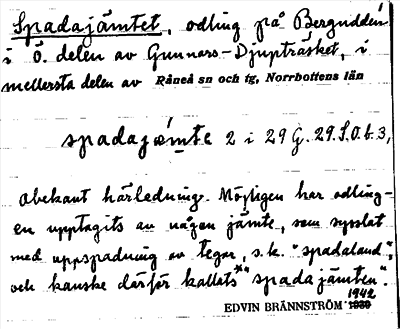 Spadajämtet, odling på Bergudden
i Ö. delen av Gunnars-Djupträsket, i
mellersta delen av Råneå sn och tg, Norrbottens län
spadajämte 2 i 29 G. 29. S. O. b. 3,
Obekant härledning. Möjligen har odling-
en upptagits av någon jämte, som sysslat
med uppspadning av tegar, s.k. "spadaland",
och kanske därför kallats "spadajämten".
1942
EDVIN BRÄNNSTRÖM 1939